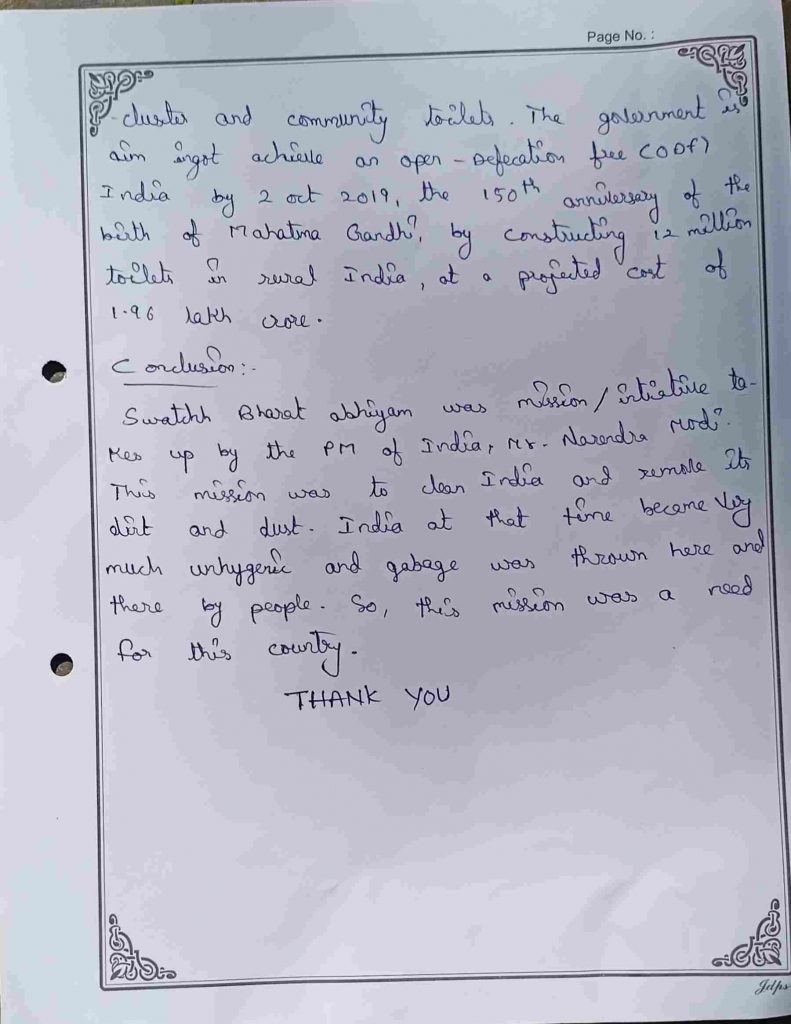 Page No. :
-cluster and community toilets. The government is
aim ingot achieve an open-Defecation free (ODF)
India by 2 oct 2019, the 150th anniversary of the
birth of Mahatma Gandhi, by constructing 12 million
toilets in rural India, at a projected cost of
1.96 lakh crore.
Conclusion:-
Swatchh Bharat abhiyam was mission/intiative ta-
kes up by the PM of India, Mr. Narendra Modi.
This mission was to clean India and remove its
dirt and dust. India at that time became very
much unhygenic and gabage was thrown here and
there by people. So, this mission was a need
for this country.
THANK YOU
Jdps